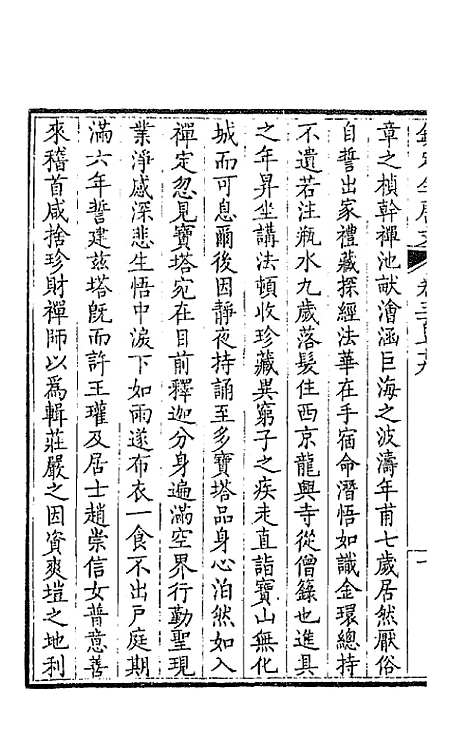 章之楨幹禪池畎澮涵巨海之波濤年甫七歲居然厭俗
自誓出家禮藏探經法華在手宿命潛悟如識金環總持
不遺若注瓶水九歲落髮住西京龍興寺從僧籙也進具
之年昇坐講法頓收珍藏異窮子之疾走直詣寶山無化
城而可息爾後因靜夜持誦至多寶塔品身心泊然如入
禪定忽見寶塔宛在目前釋迦分身遍滿空界行勤聖現
業淨感深悲生悟中淚下如雨遂布衣一食不出戶庭期
滿六年誓建茲塔旣而許王瓘及居士趙崇信女普意善
來稽首咸捨珍財禪師以爲輯莊嚴之因資爽塏之地利